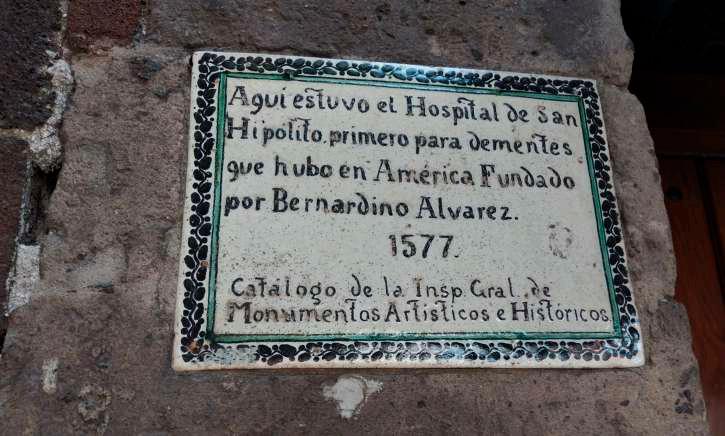 Aqui estuvo el Hospital de San
Hipolito. primero para dementes
que hubo en América Fundado
por Bernardino Alvarez.
1577.
Catalogo de la Insp. Gral. de
Monumentos Artisticos e Históricos.